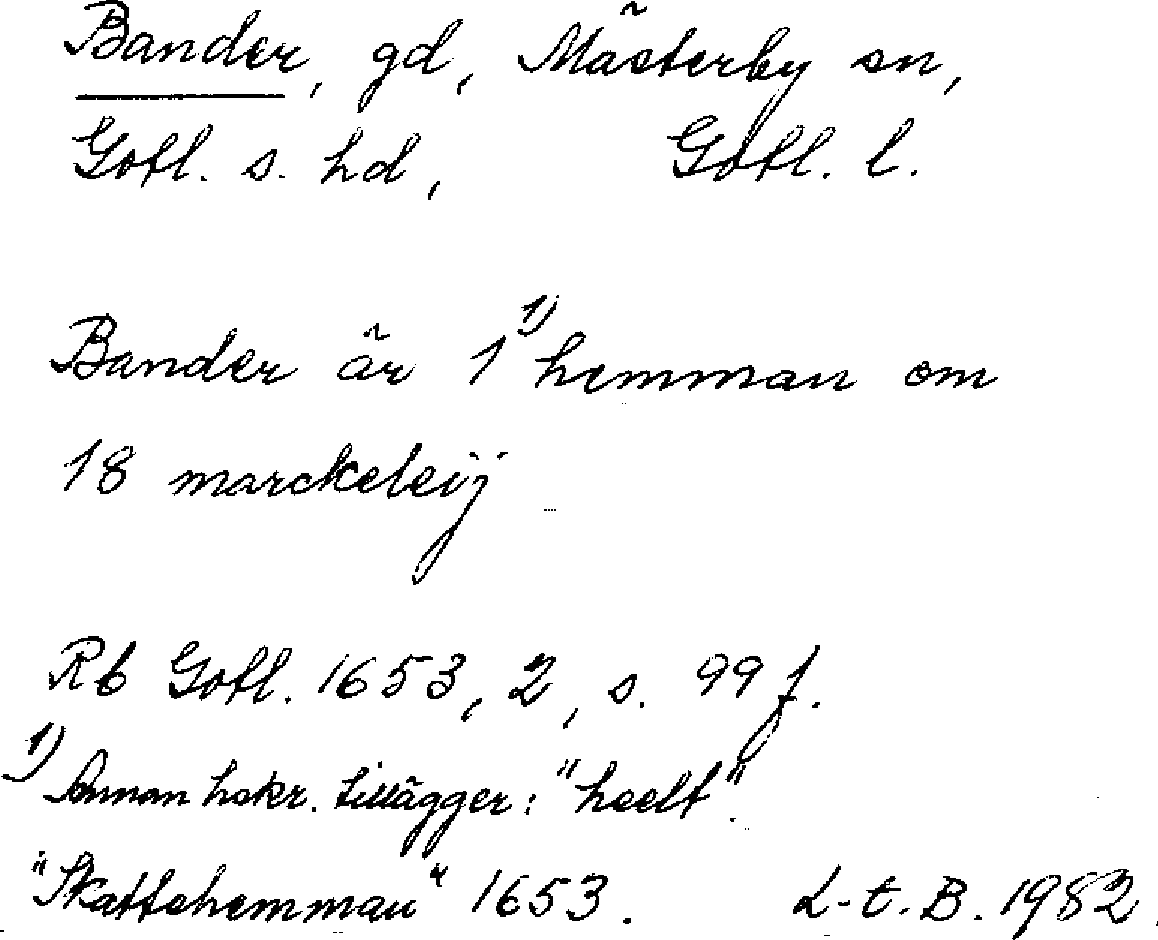 Bander, gd, Mästerby sn,
Gotl. s. hd, Gotl. l.
Bander är 1 1) hemman om
18 marckeleij
Rb Gotl. 1653, 2, s. 99 f.
1) Annan hskr. tillägger: "heelt".
"Skattehemman" 1653. L-t. B. 1982